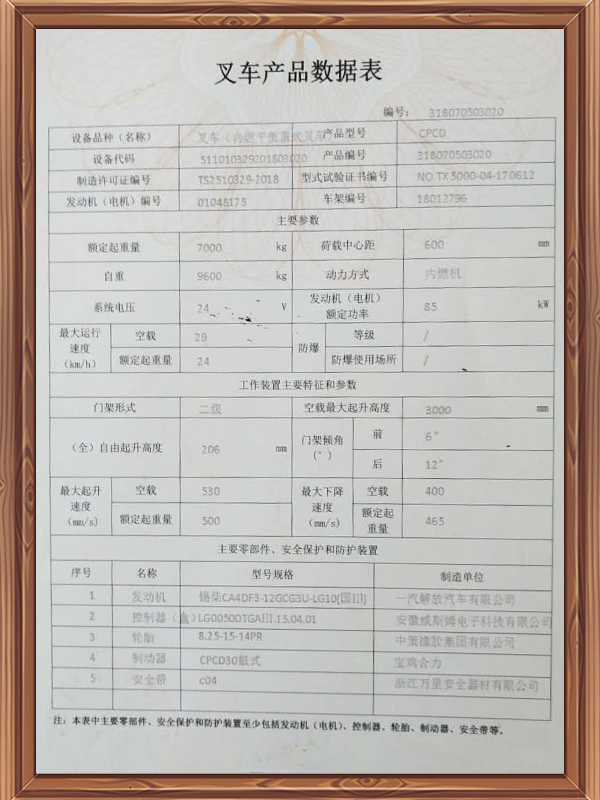 叉车产品数据表
编号： 318070503020
设备品种（名称） 叉车（内燃平衡重式叉车 产品型号 CPCD
设备代码 511010329201803020 产品编号 318070503020
制造许可证编号 TS2510329-2018 型式试验证书编号 NO.TX 5000-04-17 0612
发动机（电机）编号 01048175 车架编号 18012796
主要参数
额定起重量 7000 kg 荷载中心距 600 mm
自重 9600 kg 动力方式 内燃机
系统电压 24 V 发动机（电机）额定功率 85 kW
最大运行速度（km/h） 空载 29 防爆 等级 /
额定起重量 24 防爆使用场所 /
工作装置主要特征和参数
门架形式 二级 空载最大起升高度 3000 mm
（全）自由起升高度 206 mm 门架倾角（°） 前 6°
后 12°
最大起升速度（mm/s） 空载 530 最大下降速度（mm/s） 空载 400
额定起重量 500 额定起重量 465
主要零部件、安全保护和防护装置
序号 名称 型号规格 制造单位
1 发动机 锡柴CA4DF3-12GCG3U-LG10(国III) 一汽解放汽车有限公司
2 控制器（盒） LG0050DTGAIII.15.04.01 安徽威斯姆电子科技有限公司
3 轮胎 8.25-15-14PR 中策橡胶集团有限公司
4 制动器 CPCD30鼓式 宝鸡合力
5 安全带 c04 浙江万里安全器材有限公司
注：本表中主要零部件、安全保护和防护装置至少包括发动机（电机）、控制器、轮胎、制动器、安全带等。